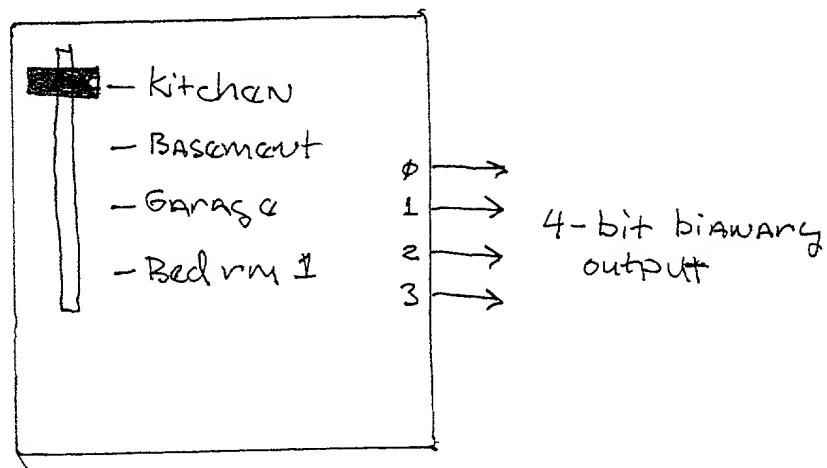 - Kitchen
- Basement
- Garage
- Bedrm 1
0
1
2
3
4-bit biawary
output